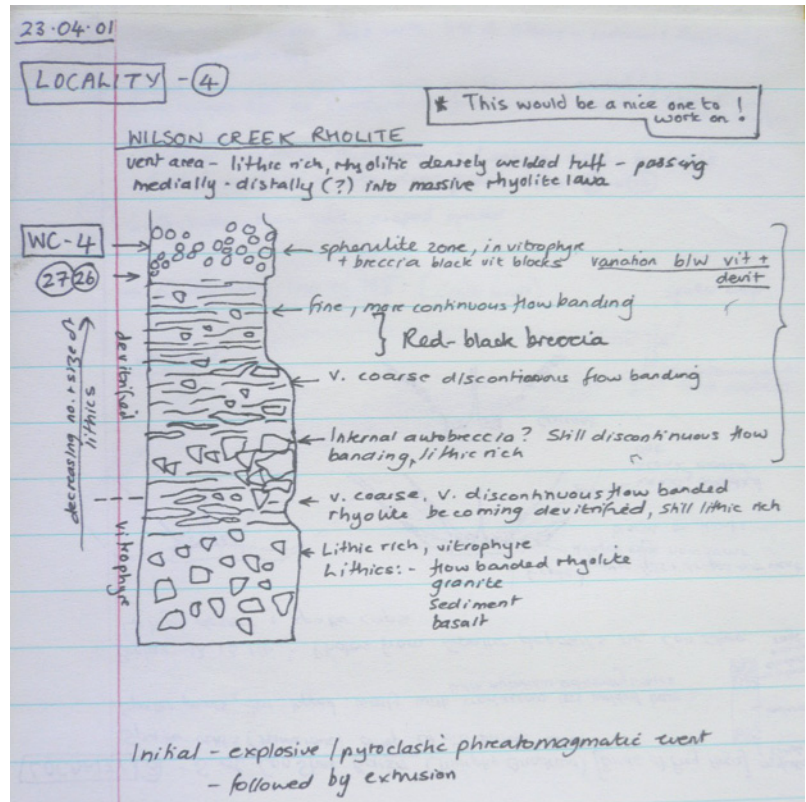 23.04.01
LOCALITY - 4
* This would be a nice one to
work on!
WILSON CREEK RHOLITE
vent area - lithic rich, rhyolitic densely welded tuff - passing
medially - distally (?) into massive rhyolite lava
WC-4
27 26
spherulite zone, in vitrophyre
+ breccia black vit blocks variation b/w vit +
devit
fine, more continuous flow banding
Red-black breccia
v. coarse discontionous flow banding
Internal autobreccia? Still discontinuous flow
banding, lithic rich
v. coarse, v. discontinuous flow banded
rhyolite becoming devitrified, still lithic rich
Lithic rich, vitrophyre
Lithics:- flow banded rhyolite
granite
sediment
basalt
decreasing no. + size of
lithics
devitrified
vitrophyre
Initial - explosive / pyroclastic phreatomagmatic event
- followed by extrusion